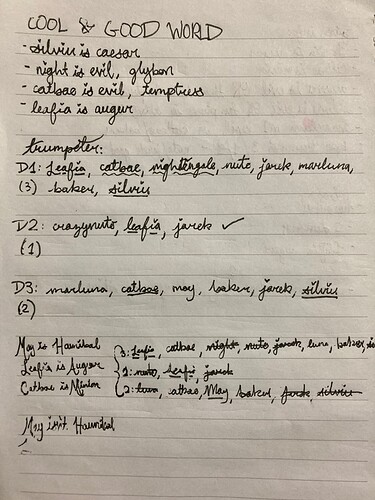 COOL & GOOD WORLD
- silviu is caesar
- night is evil, glybon
- catbae is evil, temptress
- leafia is augur
trumpeter:
D1: Leafia, catbae, nightengale, nuto, jarek, marluna,
(3) baker, silviu
D2: crazynuto, leafia, jarek ✓
(1)
D3: marluna, catbae, may, baker, jarek, silviu
(2)
May is Hannibal
3: leafia, catbae, night, nuto, jarek, luna, baker,
Leafia is Augur
1: nuto, leafia, jarek
Catbae is Minion
2: luna, catbae, May, baker, jarek, silviu
May isn't Hannibal